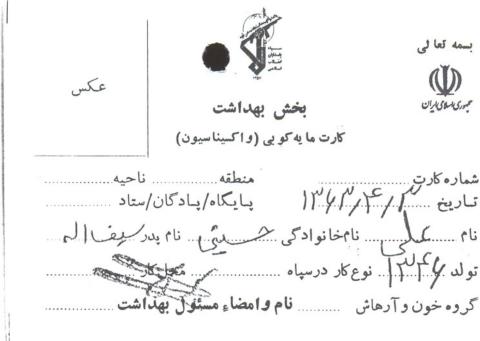 بسمه تعالی
سپاه پاسداران انقلاب اسلامی
جمهوری اسلامی ایران
عکس
بخش بهداشت
کارت مایه کوبی (واکسیناسیون)
شماره کارت منطقه ناحیه
تاریخ ۱۳۶۳/۴/۲ پایگاه/پادگان/ستاد
نام علی نام خانوادگی حسینی نام پدر سیف اله
تولد ۱۳۴۶ نوع کار در سپاه محل کار
گروه خون و آرهاش نام و امضاء مسئول بهداشت